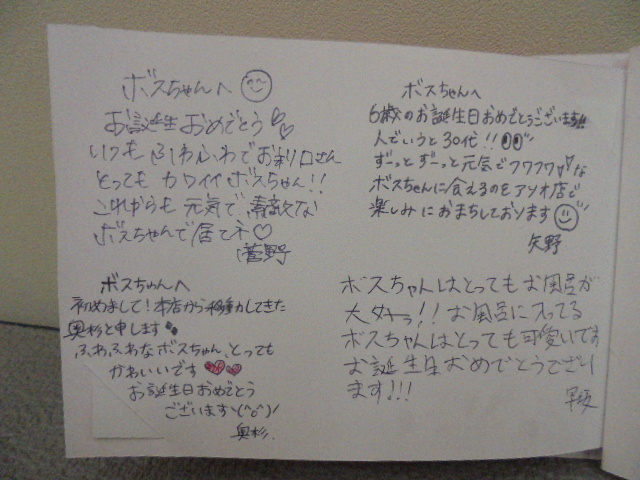 ボスちゃんへ
お誕生おめでとう
いつもふわふわでお利口さん
とってもカワイイボスちゃん!!
これからも元気で、素敵な
ボスちゃんで居てネ♡
菅野
ボスちゃんへ
6歳のお誕生日おめでとうございます!!
人でいうと30代!!
ずーっとずーっと元気でフワフワな
ボスちゃんに会えるのをアリオ店で
楽しみにおまちしております
矢野
ボスちゃんへ
初めまして!本店から移動してきた
奥杉と申します
ふわふわなボスちゃん、とっても
かわいいです
お誕生日おめでとう
ございますヽ(^o^)丿
奥杉.
ボスちゃんはとってもお風呂が
大好きっ!!お風呂に入ってる
ボスちゃんはとっても可愛いです
お誕生日おめでとうござい
ます!!!
早坂